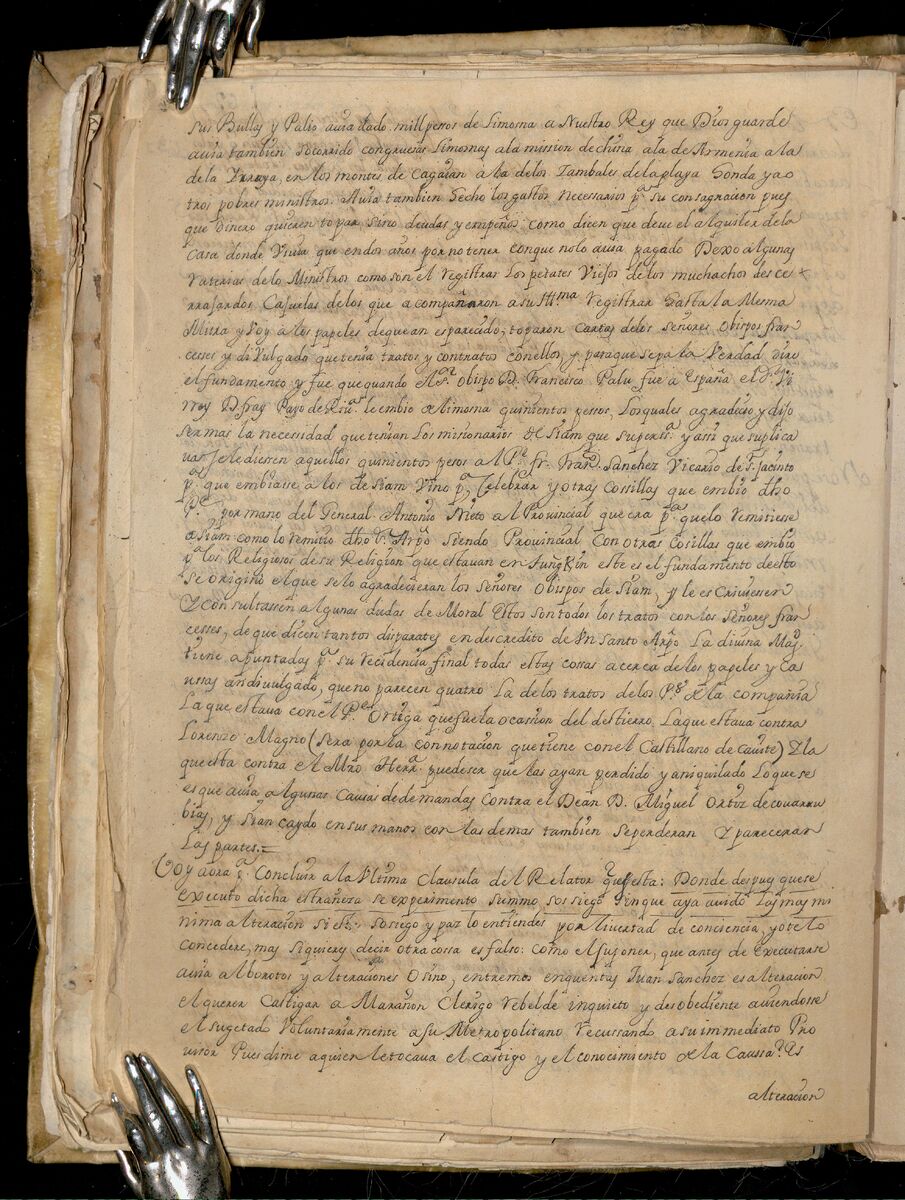 sus Bullas y Palio auia dado mill pessos de Limosna a Nuestro Rey que Dios guarde
auia tambien socorrido congruesas Limosnas ala mission dechina ala de Armenia a la
de la Yrraya, en los montes de Cagaian a la delos Zambales dela playa honda y ao
tros pobres ministros. Auia tambien hecho los gastos necessarios pª su consagracion pues
que dinero quieren topar sino deudas y empeños como dicen que deue el alquiler dela
Casa donde Viuia que endos años por no tener conque nolo auia pagado Dexo algunas
raterias de lo Ministros como son el registrar los petates Viejos de los muchachos desce
rrajandos Cajuelas delos que acompañaron a su Illma registrar hasta la Mesma
Mitra y Voy a los papeles dequean esparecido; toparon Cartas delos Señores Obispos fran
cesses y diVulgado quetenia tratos y contratos conellos, y paraque sepa la Verdad dire
el fundamento y fue quequando el Sr Obispo D. Francisco Palu fue a España el Sr Vi
rrey D fray Payo de Riuª le embio de limosna quinientos pessos, Losquales agradecio y dijo
ser mas la necessidad que tenian Los missionarios de Siam que su perssª y assi que suplica
ua sele diessen aquellos quinientos pesos al Pe fr. Franco Sanchez Vicario de S. Jacinto
pª que embiasse a los de Siam Vino pª Celebrar y otras Cossillas que embio dho
Pe por mano del General Antonio Nieto al Prouincial que era pª quelo remitiesse
a Siam como lo remitio dho Sr Arpo siendo Prouincial Con otras Cosillas que embio
pª los Religiosos de su Religion que estauan en Tunqkin este es el fundamento deesto
se origino el que se lo agradecieran los Señores Obispos de Siam, y le escriuiesen
Y consultassen algunas dudas de Moral Estos son todos los tratos con los Señores fran
cesses, de que dicen tantos disparates en descredito de Vn Santo Arpo La diuina Mag
tiene apuntadas pª su recidencia final todas estas cossas acerca de los papeles y Ca
ussas an diuulgado, que no parecen quatro La de los tratos de los Ps de la compañia
La que estaua con el Pe Ortiga que fue la ocassion del destierro, La que estaua contra
Lorenzo Magno (sera por la connotacion que tiene con el Castillano de Cauite) Y la
que esta contra el Mro Herrª puede ser que las ayan perdido y aniquilado Lo que se
es que auia algunas Causas de demandas Contra el Dean D. Miguel Ortiz de couarru
bias, y si an caydo en sus manos con las demas tambien se perderan Y pareceran
Las partes.=
Voy aora pª Concluir a la Vltima Clausula del Relator que es esta: Donde despues que se
executo dicha estrañesa se experimento summo sossiego sin que aya auido Las mas mi
nima alteracion si este sosiego y paz lo entiendes por liuertad de conciencia, yo te lo
concedere, mas si quieres decir otra cossa es falso: Como el suponer, que antes de executarse
auia alborotos y alteraciones O sino, entremos en quentas Juan Sanchez es alteracion
el querer Castigar a Marañon Clerigo rebelde inquieto y desobediente auiendosse
el sugetado Voluntariamente a su Metropolitano recussando a su immediato Pro
uisor Pues dime a quien le tocaua el castigo y el conocimiento de la Caussa? Es
alteracion